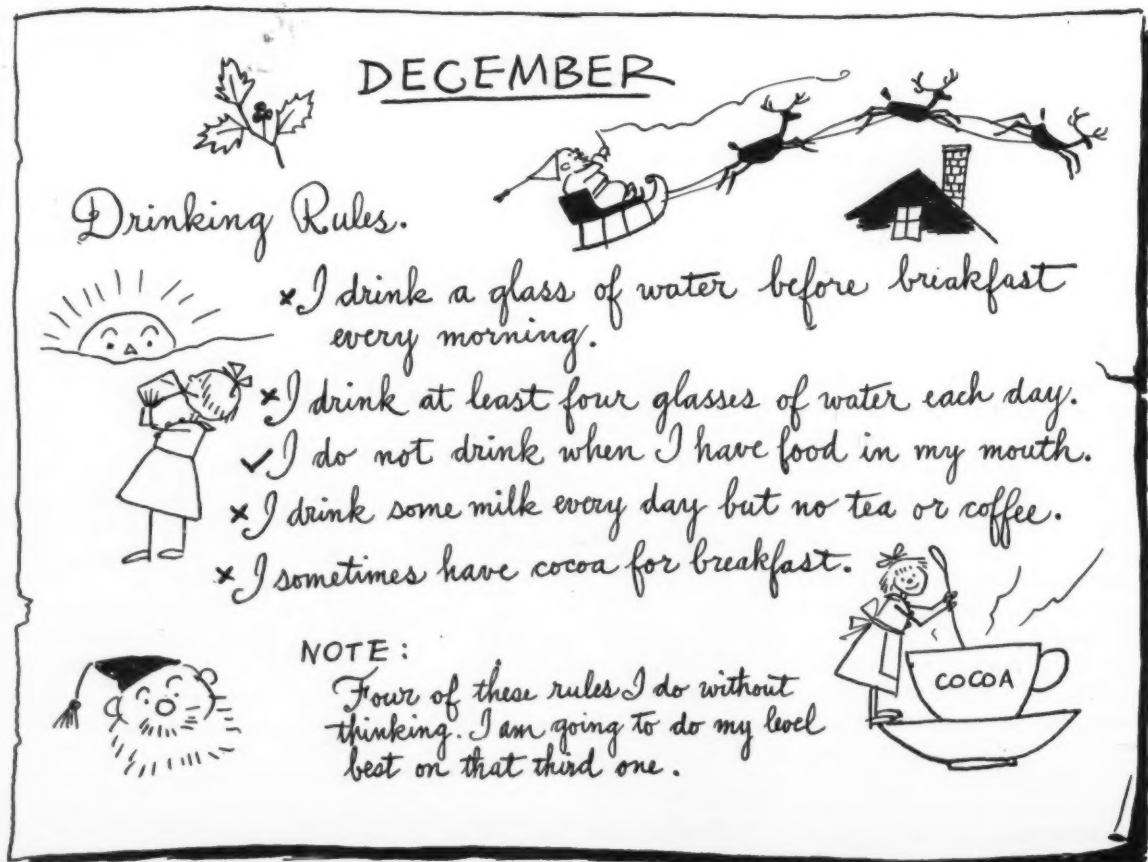 DECEMBER
Drinking Rules.
×I drink a glass of water before breakfast
every morning.
×I drink at least four glasses of water each day.
✓I do not drink when I have food in my mouth.
×I drink some milk every day but no tea or coffee.
×I sometimes have cocoa for breakfast.
COCOA
NOTE:
Four of these rules I do without
thinking. I am going to do my level
best on that third one.